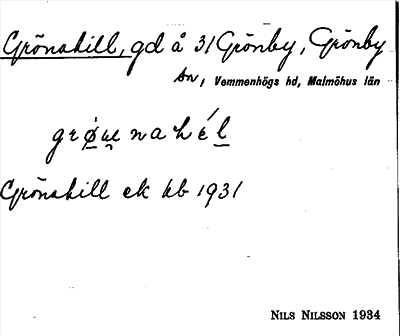 Grönahill, gd å 31 Grönby, Grönby
sn, Vemmenhögs hd, Malmöhus län
grø̠u̯nahél̠
Grönahill ek kb 1931
NILS NILSSON 1934